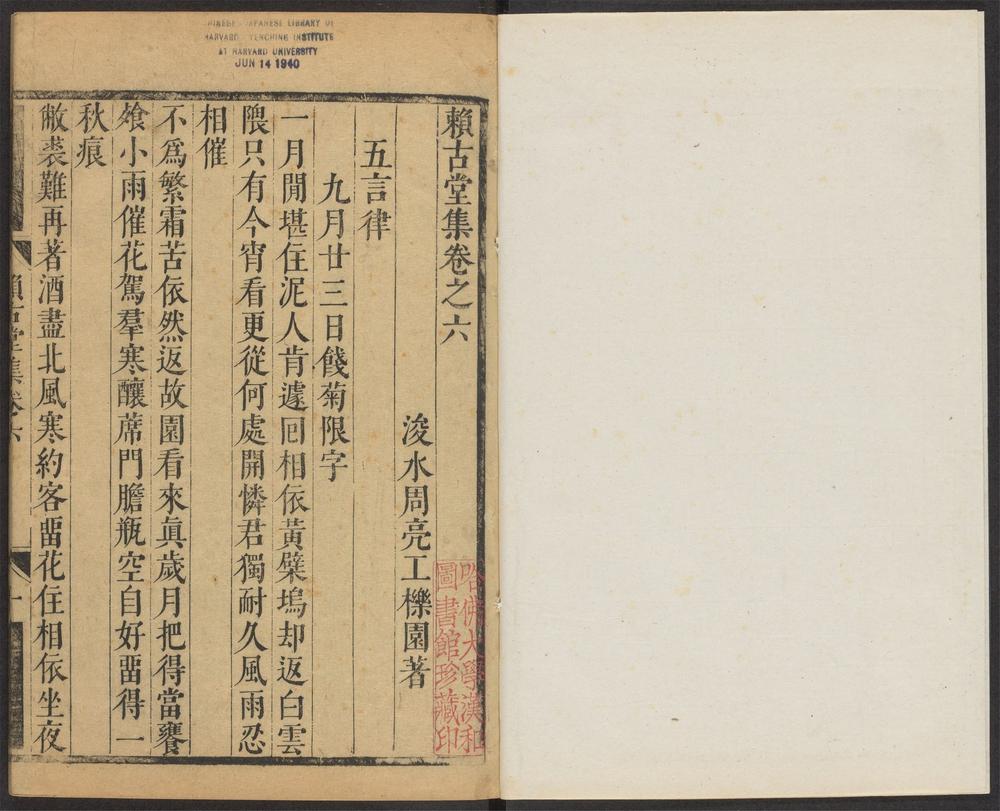 CHINESE-JAPANESE LIBRARY OF
HARVARD-YENCHING INSTITUTE
AT HARVARD UNIVERSITY
JUN 14 1940
賴古堂集卷之六
浚水周亮工櫟園著
五言律
九月廿三日餞菊限字
一月閒堪住泥人肯遽囘相依黃檗塢却返白雲
隈只有今宵看更從何處開憐君獨耐久風雨忍
相催
不爲繁霜苦依然返故園看來眞歲月把得當饔
飧小雨催花駕羣寒釀蓆門膽瓶空自好畱得一
秋痕
敝裘難再著酒盡北風寒約客畱花住相依坐夜
賴古堂集卷六
一
哈佛大學漢和
圖書館珍藏印